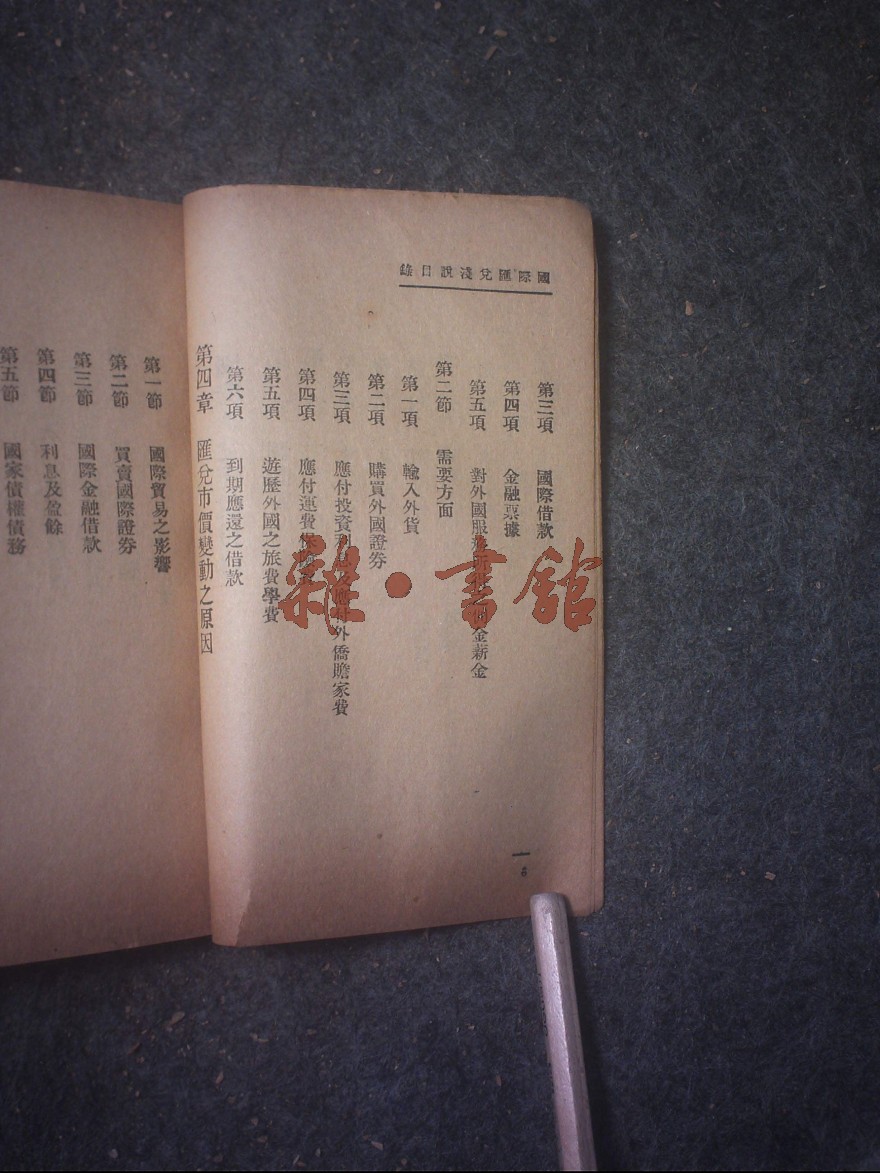 國際匯兌淺說目錄
第三項 國際借款
第四項 金融票據
第五項 對外國服務所收之佣金薪金
第二節 需要方面
第一項 輸入外貨
第二項 購買外國證券
第三項 應付投資利息及應付外僑贍家費
第四項 應付運費保險費
第五項 遊歷外國之旅費學費
第六項 到期應還之借款
第四章 匯兌市價變動之原因
第一節 國際貿易之影響
第二節 買賣國際證券
第三節 國際金融借款
第四節 利息及盈餘
第五節 國家債權債務
雜·書館